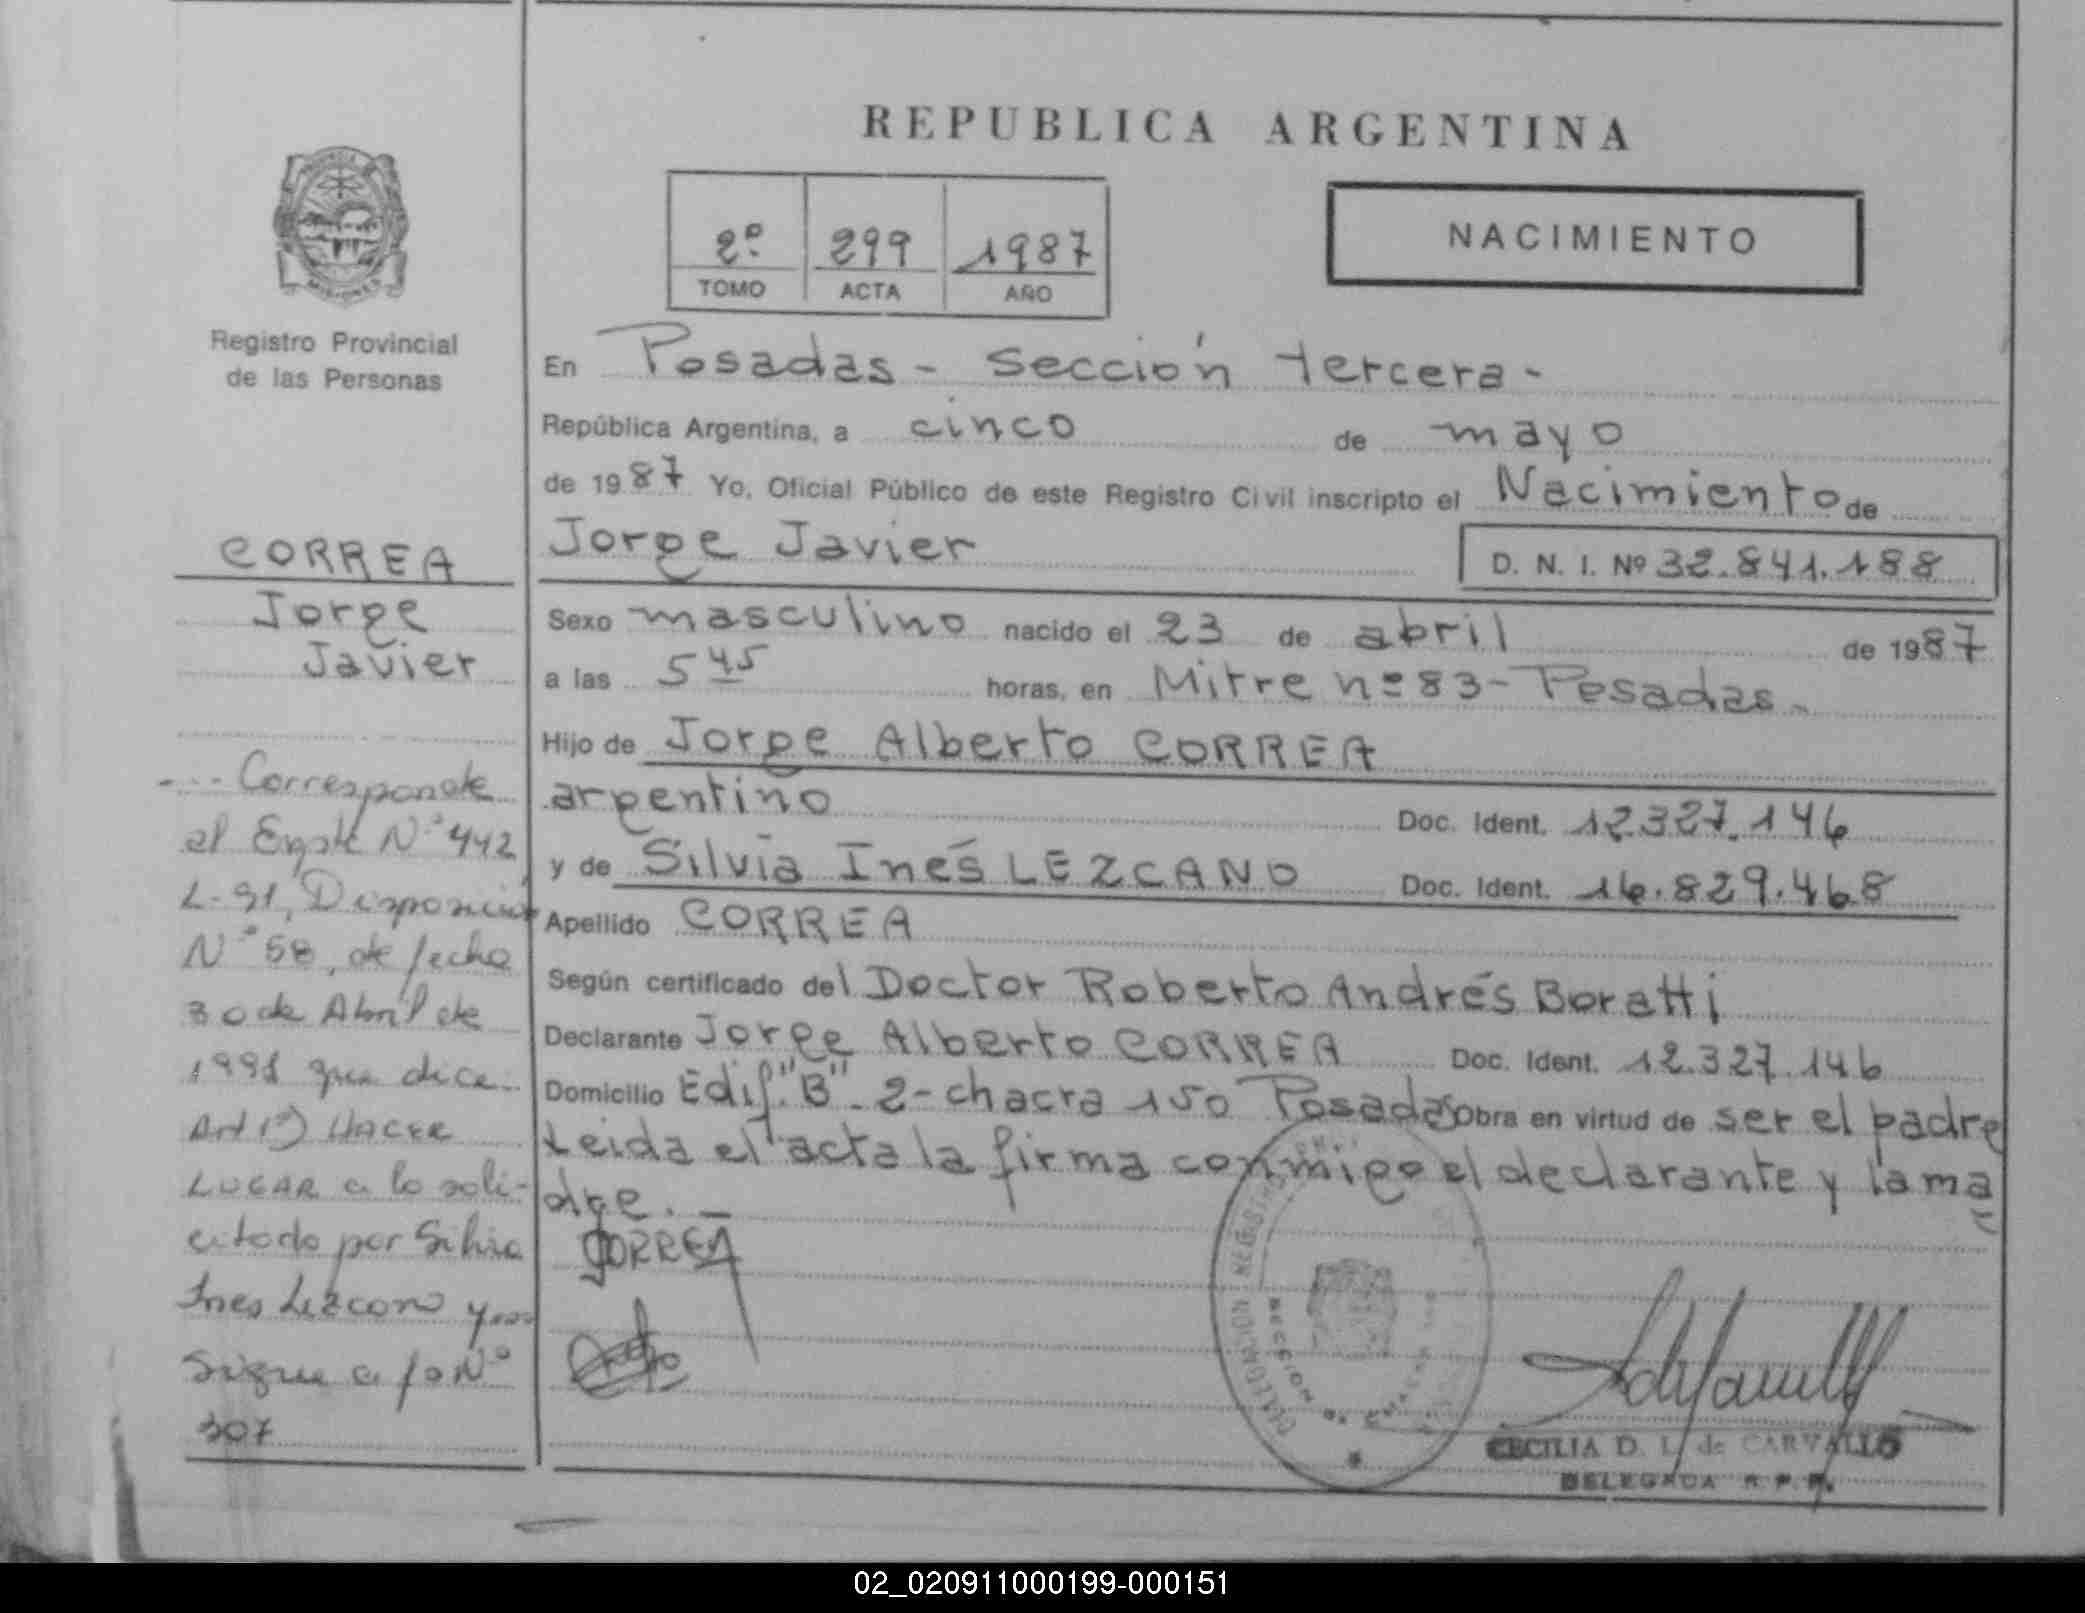 REPUBLICA ARGENTINA
2º 299 1987
TOMO ACTA AÑO
NACIMIENTO
MISIONES
Registro Provincial
de las Personas
CORREA
Jorge
Javier
--- Corresponde
al Expte Nº 442,
L-91, Disposición
Nº 58, de fecha
30 de Abril de
1991 que dice
Art 1º) HACER
LUGAR a lo soli-
citado por Silvia
Ines Lezcano y
Sigue a fo Nº
307
En Posadas - Sección tercera -
República Argentina, a cinco de mayo
de 1987 Yo, Oficial Público de este Registro Civil inscripto el Nacimiento de
Jorge Javier D. N. I. Nº 32.841.188
Sexo masculino nacido el 23 de abril de 1987
a las 5 45 horas, en Mitre nº 83 - Posadas -
Hijo de Jorge Alberto CORREA
argentino Doc. Ident. 12.327.146
y de Silvia Inés LEZCANO Doc. Ident. 16.829.468
Apellido CORREA
Según certificado del Doctor Roberto Andrés Boratti
Declarante Jorge Alberto CORREA Doc. Ident. 12.327.146
Domicilio Edif. "B" - 2 - chacra 150 Posadas Obra en virtud de ser el padre
Leida el acta la firma conmigo el declarante y la ma
dre. -
CORREA
DELEGACION REGISTRO
SECCION
CECILIA D. L. de CARVALLO
DELEGADA R. P. P.
02_020911000199-000151